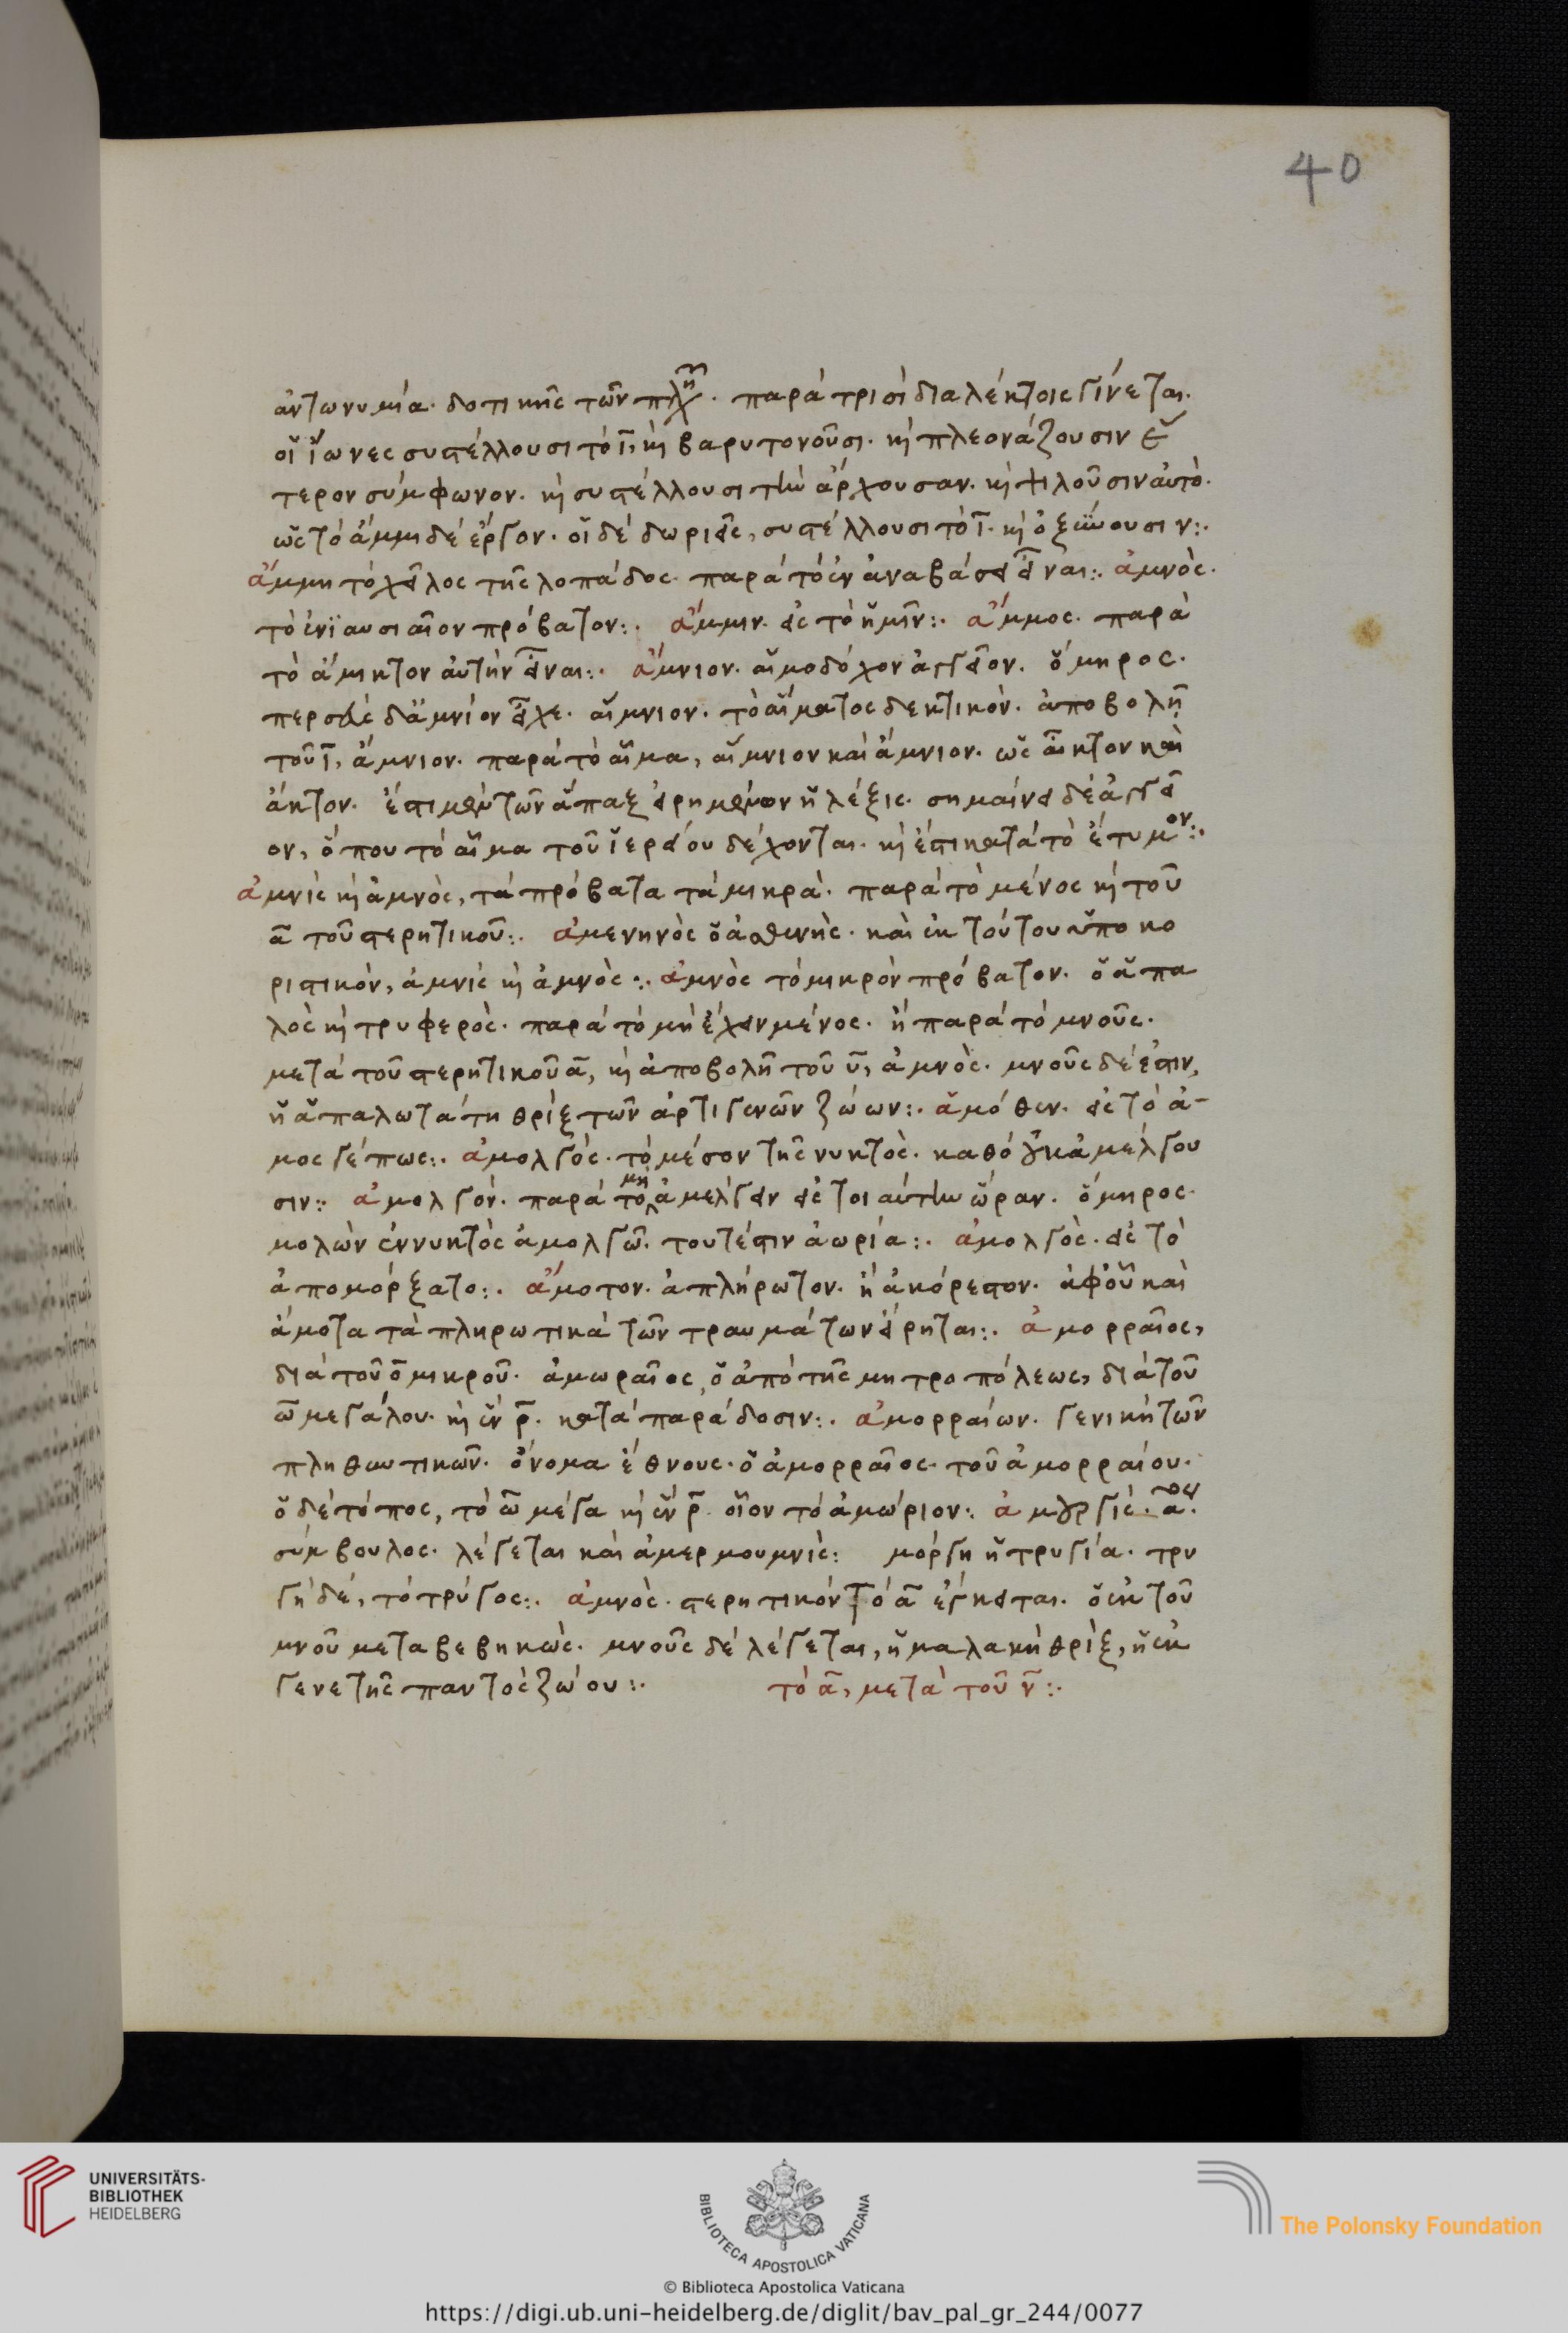 40
ἀντωνυμία· δοτικῆς τῶν πλη. παρὰ τρισὶ διαλέκτοις γίνεται.
οἵ ἴωνες συστέλλουσι τὸ ῑ, κὶ βαρυτονοῦσι. κὶ πλεονάζουσιν ἕ
τερον σύμφωνον. κὶ συστέλλουσι τὴν ἄρχουσαν. κὶ ψιλοῦσιν αὐτό.
ὡς τὸ ἄμμι δέ ἔργον. οἵ δέ δωριεῖς, συστέλλουσι τὸ ῑ. κὶ ὀξύνουσιν:.
ἄμμη τὸ χεῖλος τῆς λοπάδος. παρὰ τὸ ἐν ἀναβάσει εἶναι:. ἀμνὸς.
τὸ ἐνϊαυσιαῖον πρόβατον:. ἄμμιν. εἰς τὸ ἡμῖν:. ἄμμος. παρὰ
τὸ ἄμικτον αὐτὴν εἶναι:. ἄμνιον. αἱμοδόχον ἀγγεῖον. ὅμηρος.
περσεὺς δ' ἀμνίον εἶχε. αἵμνιον. τὸ αἵματος δεκτικὸν. ἀποβολῆ
τοῦ ῑ, ἄμνιον. παρὰ τὸ αἷμα, αἵμνιον καὶ ἄμνιον. ὡς ἄϊκτον καὶ
ἄκτον. ἔστι μὲν τῶν ἅπαξ εἰρημένων ἡ λέξις. σημαίνει δέ ἀγγεῖ
ον, ὅπου τὸ αἷμα τοῦ ἱερείου δέχονται. κὶ ἔστι κατὰ τὸ ἔτυμον:.
ἀμνὶς κὶ ἀμνὸς, τὰ πρόβατα τὰ μικρὰ. παρὰ τὸ μένος κὶ τοῦ
ᾱ τοῦ στερητικοῦ:. ἀμενηνὸς ὁ ἀσθενὴς. καὶ ἐκ τούτου ὑποκο
ριστικὸν, ἀμνὶς κὶ ἀμνὸς:. ἀμνὸς τὸ μικρὸν πρόβατον. ὁ ἁπα
λὸς κὶ τρυφερὸς. παρὰ τὸ μὴ ἔχειν μένος. ἢ παρὰ τὸ μνοῦς.
μετὰ τοῦ στερητικοῦ ᾱ, κὶ ἀποβολῆ τοῦ ῡ, ἀμνὸς. μνοῦς δέ ἐστιν,
ἡ ἁπαλωτάτη θρὶξ τῶν ἀρτιγενῶν ζώων:. ἁμόθεν. εἰς τὸ ἀ-
μοςγέπως:. ἀμολγὸς. τὸ μέσον τῆς νυκτὸς. καθό οὐκ ἀμέλγου
σιν:. ἀμολγόν. παρὰ τὸ μὴ ἀμέλγειν εἰς τοιαύτην ὥραν. ὅμηρος.
μολὼν ἐν νυκτὸς ἀμολγῶ. τουτέστιν ἀωρία:. ἀμολγὸς. εἰς τὸ
ἀπομόρξατο:. ἄμοτον. ἀπλήρωτον. ἢ ἀκόρεστον. ἀφοῦ καὶ
ἄμοτα τὰ πληρωτικὰ τῶν τραυμάτων εἴρηται:. ἀμορραῖος,
διὰ τοῦ ο̄ μικροῦ. ἀμωραῖος, ὁ ἀπὸ τῆς μητροπόλεως, διὰ τοῦ
ω̄ μεγάλου. κὶ ἕν ρ̄. κατὰ παράδοσιν:. ἀμορραίων. γενικὴ τῶν
πληθυντικῶν. ὄνομα ἔθνους. ὁ ἀμορραῖος. τοῦ ἀμορραίου.
ὁ δέ τόπος, τὸ ω̄ μέγα κὶ ἕν ρ̄. οἷον τὸ ἀμώριον:. ἀμουργίς.
σύμβουλος. λέγεται καὶ ἀμερμουμνὶς: μόργη ἡ τρυγία. τρυ
γὴ δέ, τὸ τρύγος:. ἀμνὸς. στερητικόν τὸ ᾱ ἔγκειται. ὁ ἐκ τοῦ
μνοῦ μεταβεβηκὼς. μνοῦς δέ λέγεται, ἡ μαλακὴ θρὶξ, ἡ ἐκ
γενετῆς παντὸς ζώου:. τὸ ᾱ, μετὰ τοῦ ν̄:.
UNIVERSITÄTS-
BIBLIOTHEK
HEIDELBERG
BIBLIOTECA APOSTOLICA VATICANA
The Polonsky Foundation
© Biblioteca Apostolica Vaticana
https://digi.ub.uni-heidelberg.de/diglit/bav_pal_gr_244/0077